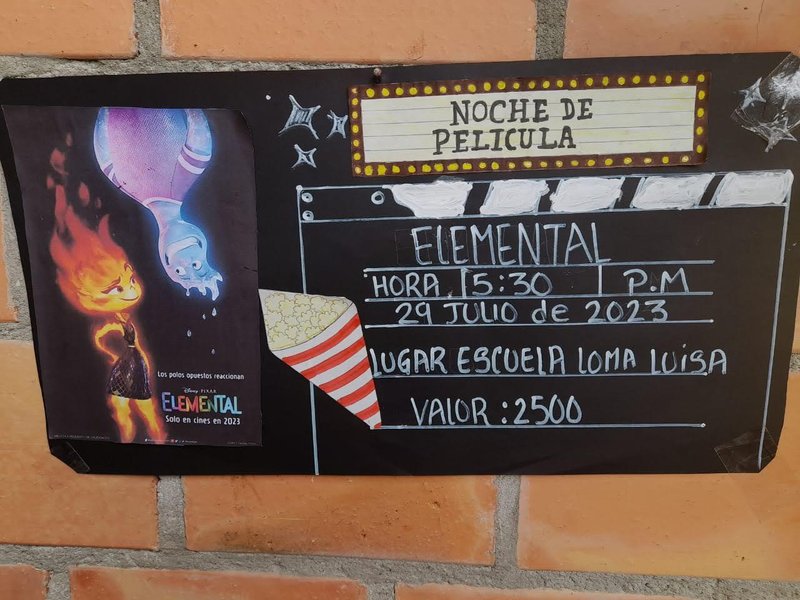 NOCHE DE
PELICULA
ELEMENTAL
HORA 5:30 P.M
29 JULIO de 2023
LUGAR ESCUELA LOMA LUISA
VALOR: 2500
Los polos opuestos reaccionan
Disney PIXAR
ELEMENTAL
Solo en cines en 2023